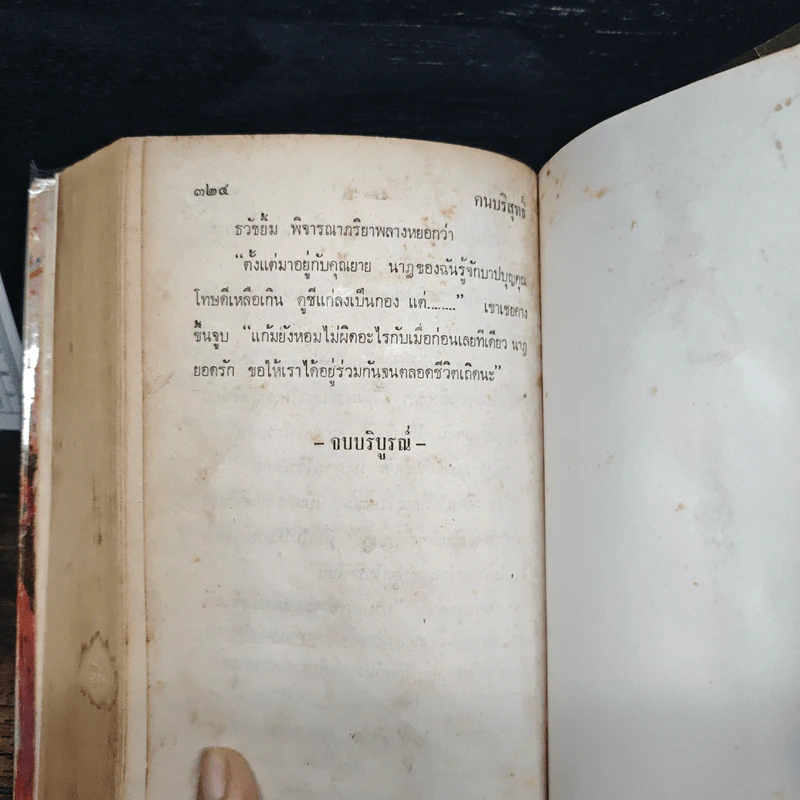 ๓๒๔
คนบริสุทธิ์
ธวัชยิ้ม พิจารณาภริยาพลางหยอกว่า
“ตั้งแต่มาอยู่กับคุณยาย นาฎของฉันรู้จักบาปบุญคุณ
โทษดีเหลือเกิน ดูซีแก่ลงเป็นกอง แต่........” เขาเชยคาง
ขึ้นจูบ “แก้มยังหอมไม่ผิดอะไรกับเมื่อก่อนเลยทีเดียว นาฎ
ยอดรัก ขอให้เราได้อยู่ร่วมกันจนตลอดชีวิตเถิดนะ”
– จบบริบูรณ์ –